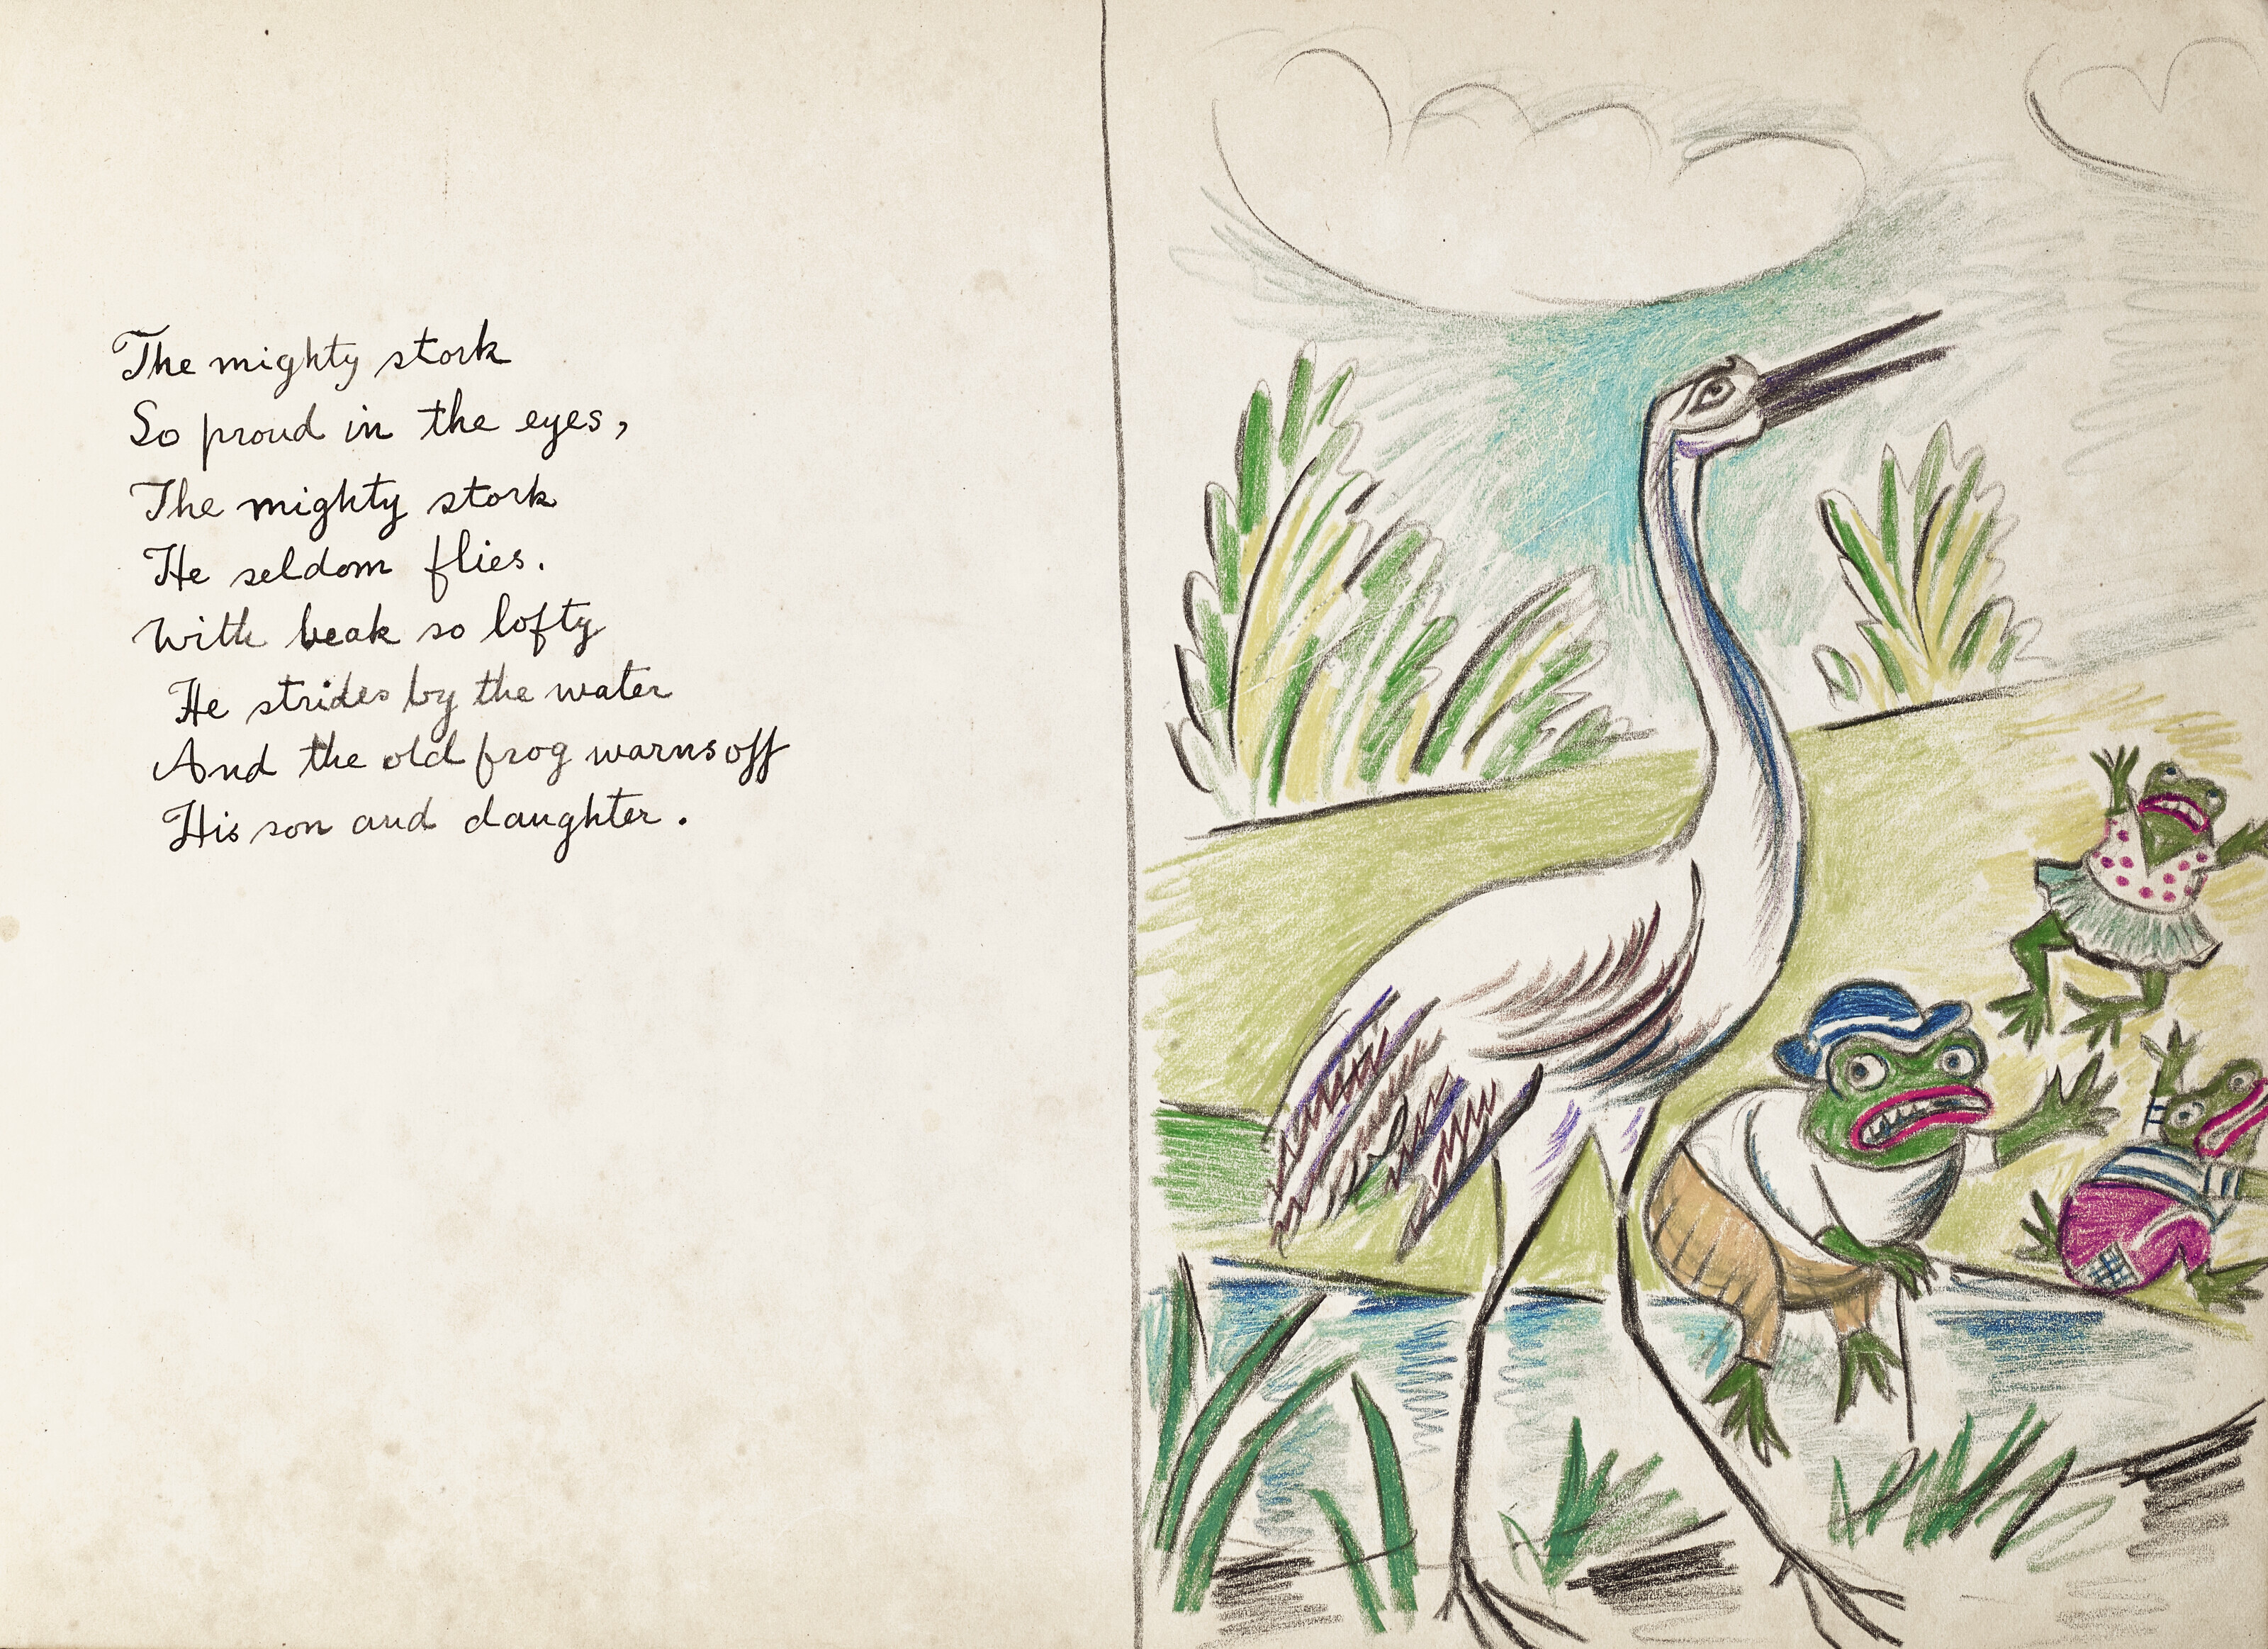 The mighty stork
So proud in the eyes,
The mighty stork
He seldom flies.
With beak so lofty
He strides by the water
And the old frog warns off
His son and daughter.